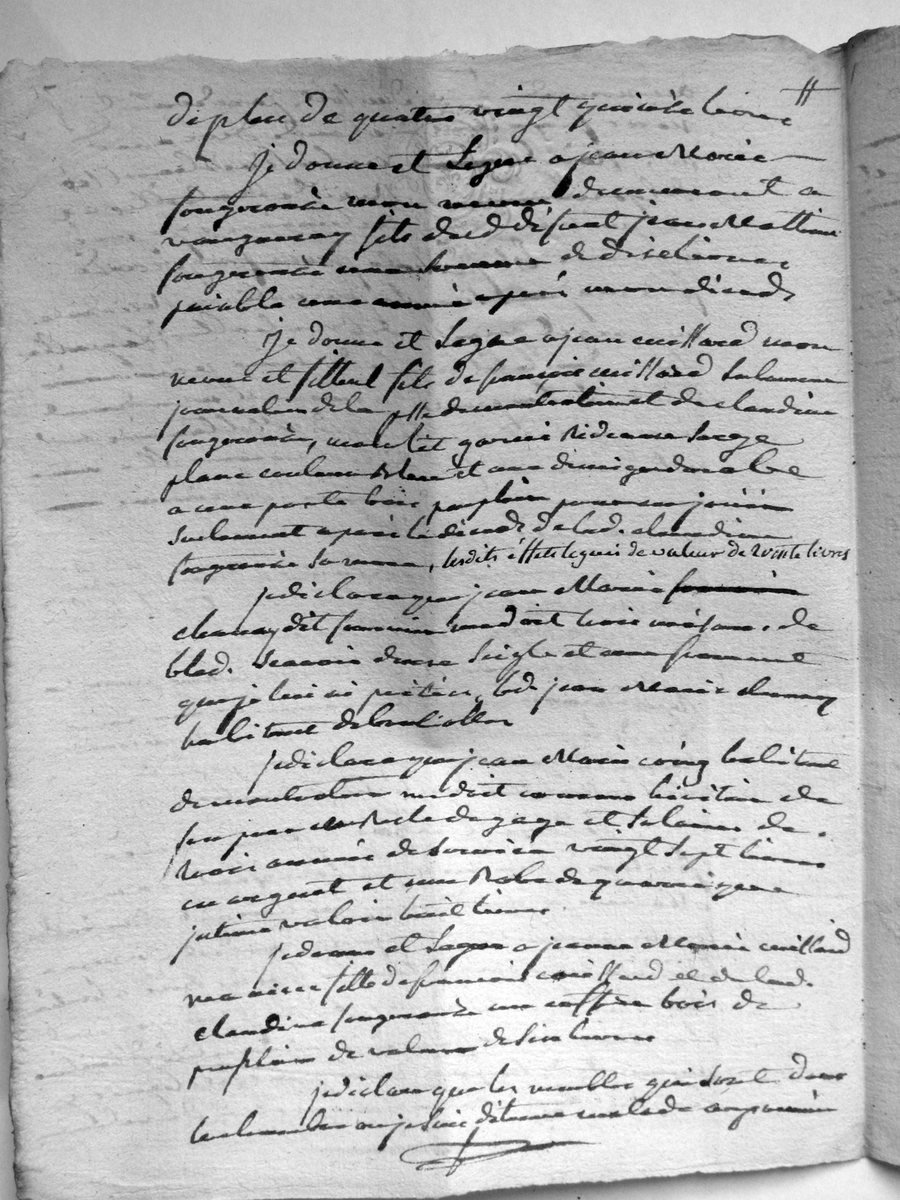 de plus de quatre vingt quinze livres
je donne et legue a jean Marie
fongerouse mon neveu demeurant a
vaugneray fils de d. defunt jean Matthieu
fongerouse une somme de dix livres
paiable une année après mon décéds
je donne et legue a jean cuillard mon
neveu et filleul fils de françois cuillard
de la psse de montrotier et de claudine
fongerouse, mon lit garni rideaux serge
couleur bleu et une
a une porte bois peuplier pour en jouir
seulement après le décéds de lad. claudine
fongerouse sa mere, lesdits effets legués de valeur de vinte livres
je déclare que jean Marie
chanay dit me doit trois mesures de
bled. scavoir deux seigle et une froment
que je lui ai pretées, led. jean Marie chanay
habitant de
je déclare que jean Marie habitant
de montrotier me doit comme héritier de
son pere un reste de gage et salaires de
trois années de service vingt sept livres
en argent et une Robe de
valoir huit livres
je donne et legue a jeanne Marie cuillard
ma niece fille de françois cuillard et de lad.
claudine fongerouse un coffre bois de
peuplier de valeur de six livres
je déclare que les meubles qui sont dans
la chambre ou je suis détenue malade